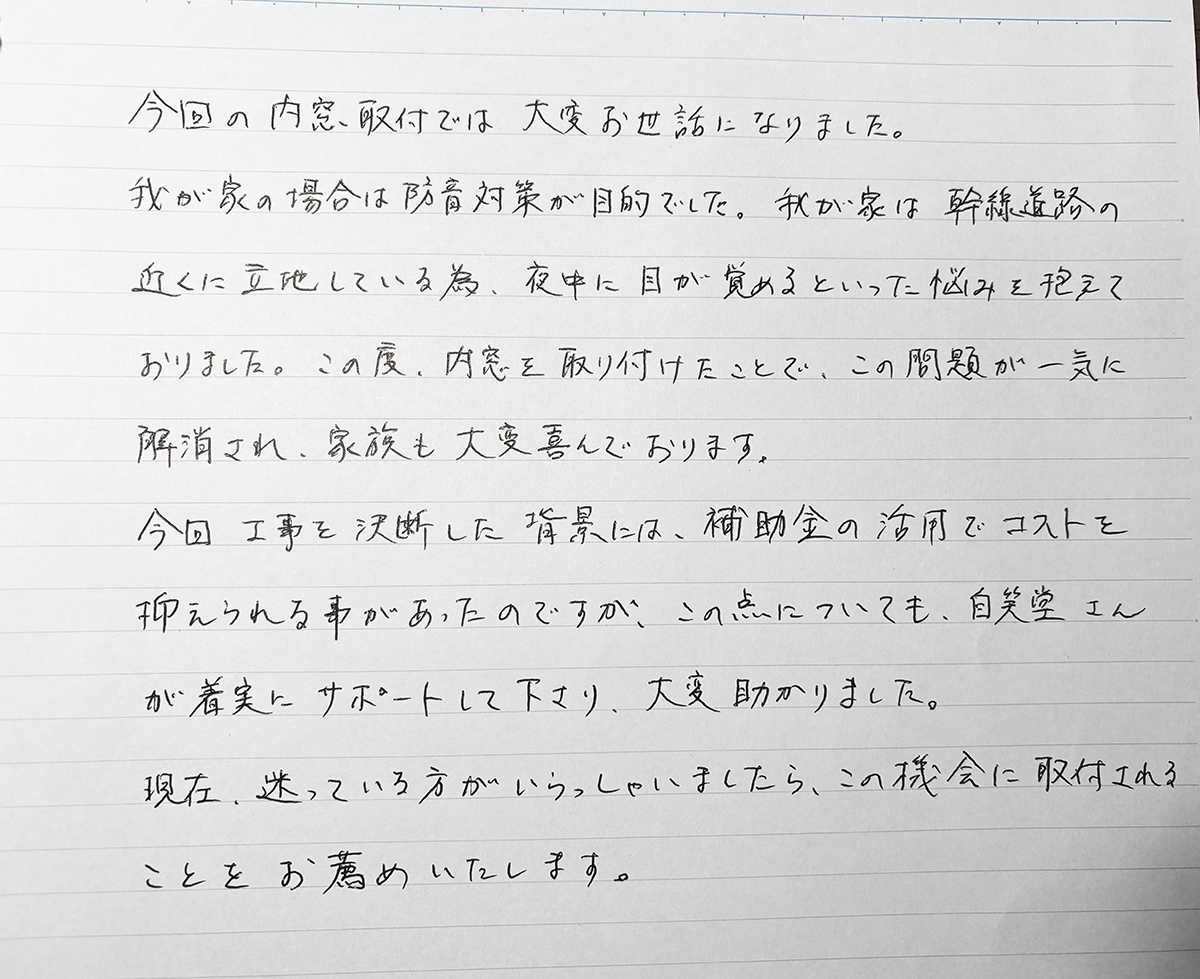 今回の内窓取付では大変お世話になりました。
我が家の場合は防音対策が目的でした。我が家は幹線道路の
近くに立地している為、夜中に目が覚めるといった悩みを抱えて
おりました。この度、内窓を取り付けたことで、この問題が一気に
解消され、家族も大変喜んでおります。
今回工事を決断した背景には、補助金の活用でコストを
抑えられる事があったのですが、この点についても、自笑堂さん
が着実にサポートして下さり、大変助かりました。
現在、迷っている方がいらっしゃいましたら、この機会に取付される
ことをお薦めいたします。